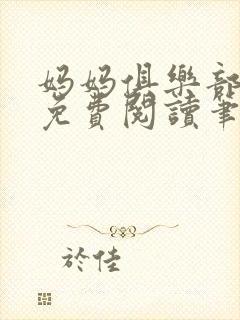 媽媽俱樂部
免費閱讀筆
於佳